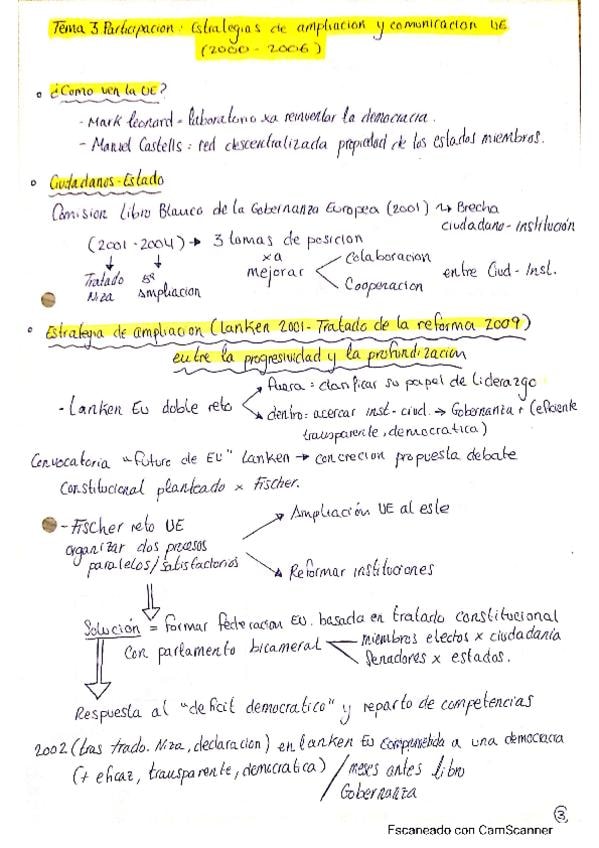 Tema 3 Participacion: Estrategias de ampliacion y comunicacion UE
(2000-2006)
¿Como ven la UE?
- Mark leonard = laboratorio xa reinventar la democracia.
- Manuel Castells = red descentralizada propiedad de los estados miembros.
Ciudadanos-Estado
Comision Libro Blanco de la Gobernanza Europea (2001) ↳ Brecha
ciudadano-institución
(2001-2004) → 3 tomas de posicion
xa
mejorar
Colaboracion
Cooperacion
entre Ciud-Inst.
Tratado
Niza
5ª
Ampliacion
Estrategia de ampliacion (Lanken 2001-Tratado de la reforma 2009)
entre la progresividad y la profundización
- Lanken EU doble reto
fuera: clarificar su papel de liderazgo
dentro: acercar inst-ciud. → Gobernanza + (eficiente
transparente, democratica)
Convocatoria "futuro de EU" Lanken → concrecion propuesta debate
Constitucional planteado x Fischer.
- Fischer reto UE
organizar dos procesos
paralelos/satisfactorios
Ampliación UE al este
Reformar instituciones
Solución = formar federacion EU. basada en tratado constitucional
con parlamento bicameral
miembros electos x ciudadanía
Senadores x estados.
Respuesta al "deficit democratico" y reparto de competencias
2002 (tras trado. Niza, declaracion) en lanken EU comprometida a una democracia
(+ eficaz, transparente, democratica) / meses antes libro
Gobernanza
3
Escaneado con CamScanner